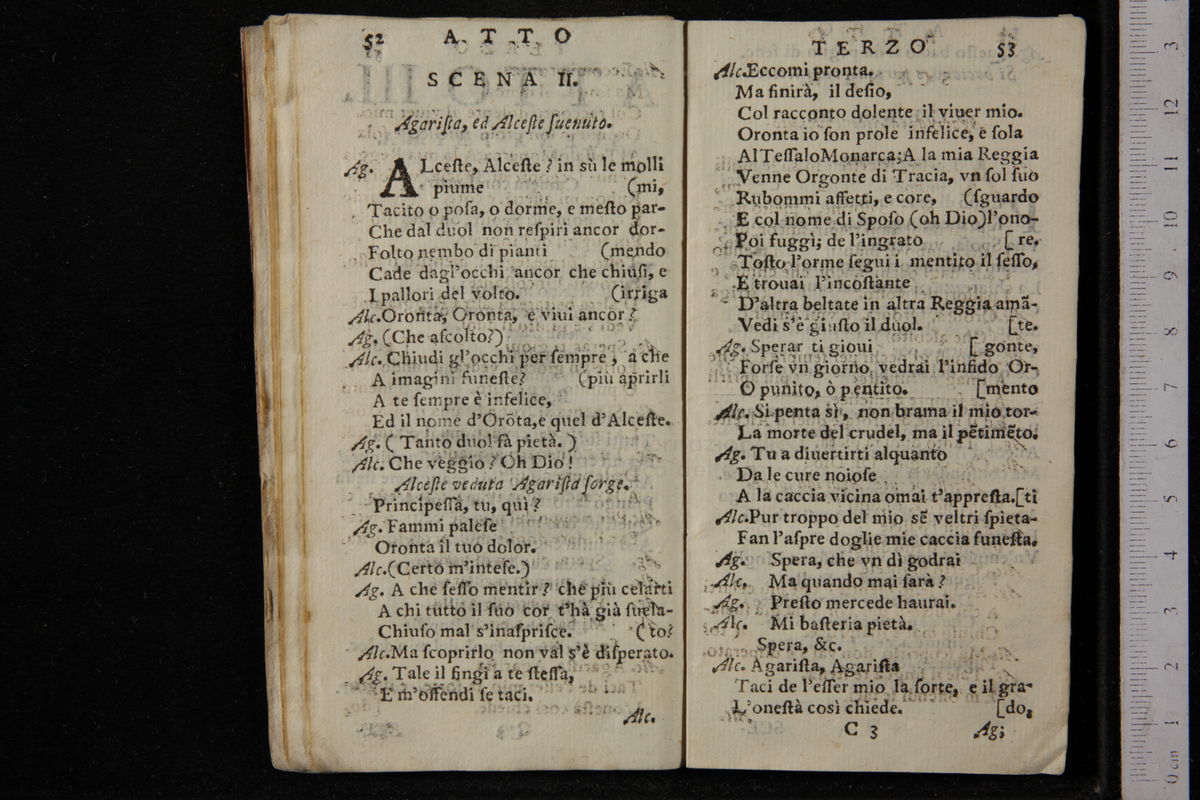 52 ATTO
SCENA II.
Agariſta, ed Alceſte ſuenuto.
Ag. ALceſte, Alceſte? in sù le molli
piume (mi,
Tacito o poſa, o dorme, e meſto par-
Che dal duol non reſpiri ancor dor-
Folto nembo di pianti (mendo
Cade dagl'occhi ancor che chiuſi, e
I pallori del volto. (irriga
Alc. Oronta, Oronta, e viui ancor?
Ag. (Che aſcolto?)
Alc. Chiudi gl'occhi per ſempre, a che
A imagini funeſte? (più aprirli
A te ſempre è infelice,
Ed il nome d'Orōta, e quel d'Alceſte.
Ag. (Tanto duol fà pietà.)
Alc. Che veggio? Oh Dio!
Alceſte veduta Agariſta ſorge.
Principeſſa, tu, quì?
Ag. Fammi paleſe
Oronta il tuo dolor.
Alc. (Certo m'inteſe.)
Ag. A che ſeſſo mentir? che più celarti
A chi tutto il ſuo cor t'hà già ſuela-
Chiuſo mal s'inaſpriſce. (to?
Alc. Ma ſcoprirlo non val s'è diſperato.
Ag. Tale il fingi a te ſteſſa,
E m'offendi ſe taci.
Alc.
TERZO 53
Alc. Eccomi pronta.
Ma finirà, il deſio,
Col racconto dolente il viuer mio.
Oronta io ſon prole infelice, e ſola
Al Teſſalo Monarca; A la mia Reggia
Venne Orgonte di Tracia, vn ſol ſuo
Rubommi affetti, e core, (ſguardo
E col nome di Spoſo (oh Dio) l'ono-
Poi fuggì; de l'ingrato [re.
Toſto l'orme ſegui i mentito il ſeſſo,
E trouai l'incoſtante
D'altra beltate in altra Reggia amā-
Vedi s'è giuſto il duol. [te.
Ag. Sperar ti gioui [gonte,
Forſe vn giorno vedrai l'infido Or-
O punito, ò pentito. [mento
Alc. Si penta sì, non brama il mio tor-
La morte del crudel, ma il pētimēto.
Ag. Tu a diuertirti alquanto
Da le cure noioſe
A la caccia vicina omai t'appreſta. [ti
Alc. Pur troppo del mio sē veltri ſpieta-
Fan l'aſpre doglie mie caccia funeſta.
Ag. Spera, che vn dì godrai
Alc. Ma quando mai ſarà?
Ag. Preſto mercede haurai.
Alc. Mi baſteria pietà.
Spera, &c.
Alc. Agariſta, Agariſta
Taci de l'eſſer mio la ſorte, e il gra-
L'oneſtà così chiede. [do,
C 3 Ag;